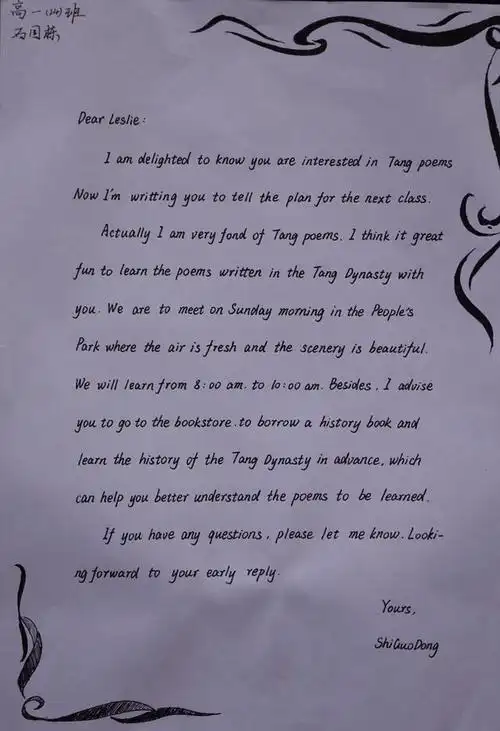 高一(24)班
石国栋
Dear Leslie:
I am delighted to know you are interested in Tang poems
Now I'm writting you to tell the plan for the next class.
Actually I am very fond of Tang poems. I think it great
fun to learn the poems written in the Tang Dynasty with
you. We are to meet on Sunday morning in the People's
Park where the air is fresh and the scenery is beautiful.
We will learn from 8:00 am. to 10:00 am. Besides, I advise
you to go to the bookstore.to borrow a history book and
learn the history of the Tang Dynasty in advance, which
can help you better understand the poems to be learned.
If you have any questions, please let me know. Looki-
ng forward to your early reply.
Yours,
ShiGuoDong